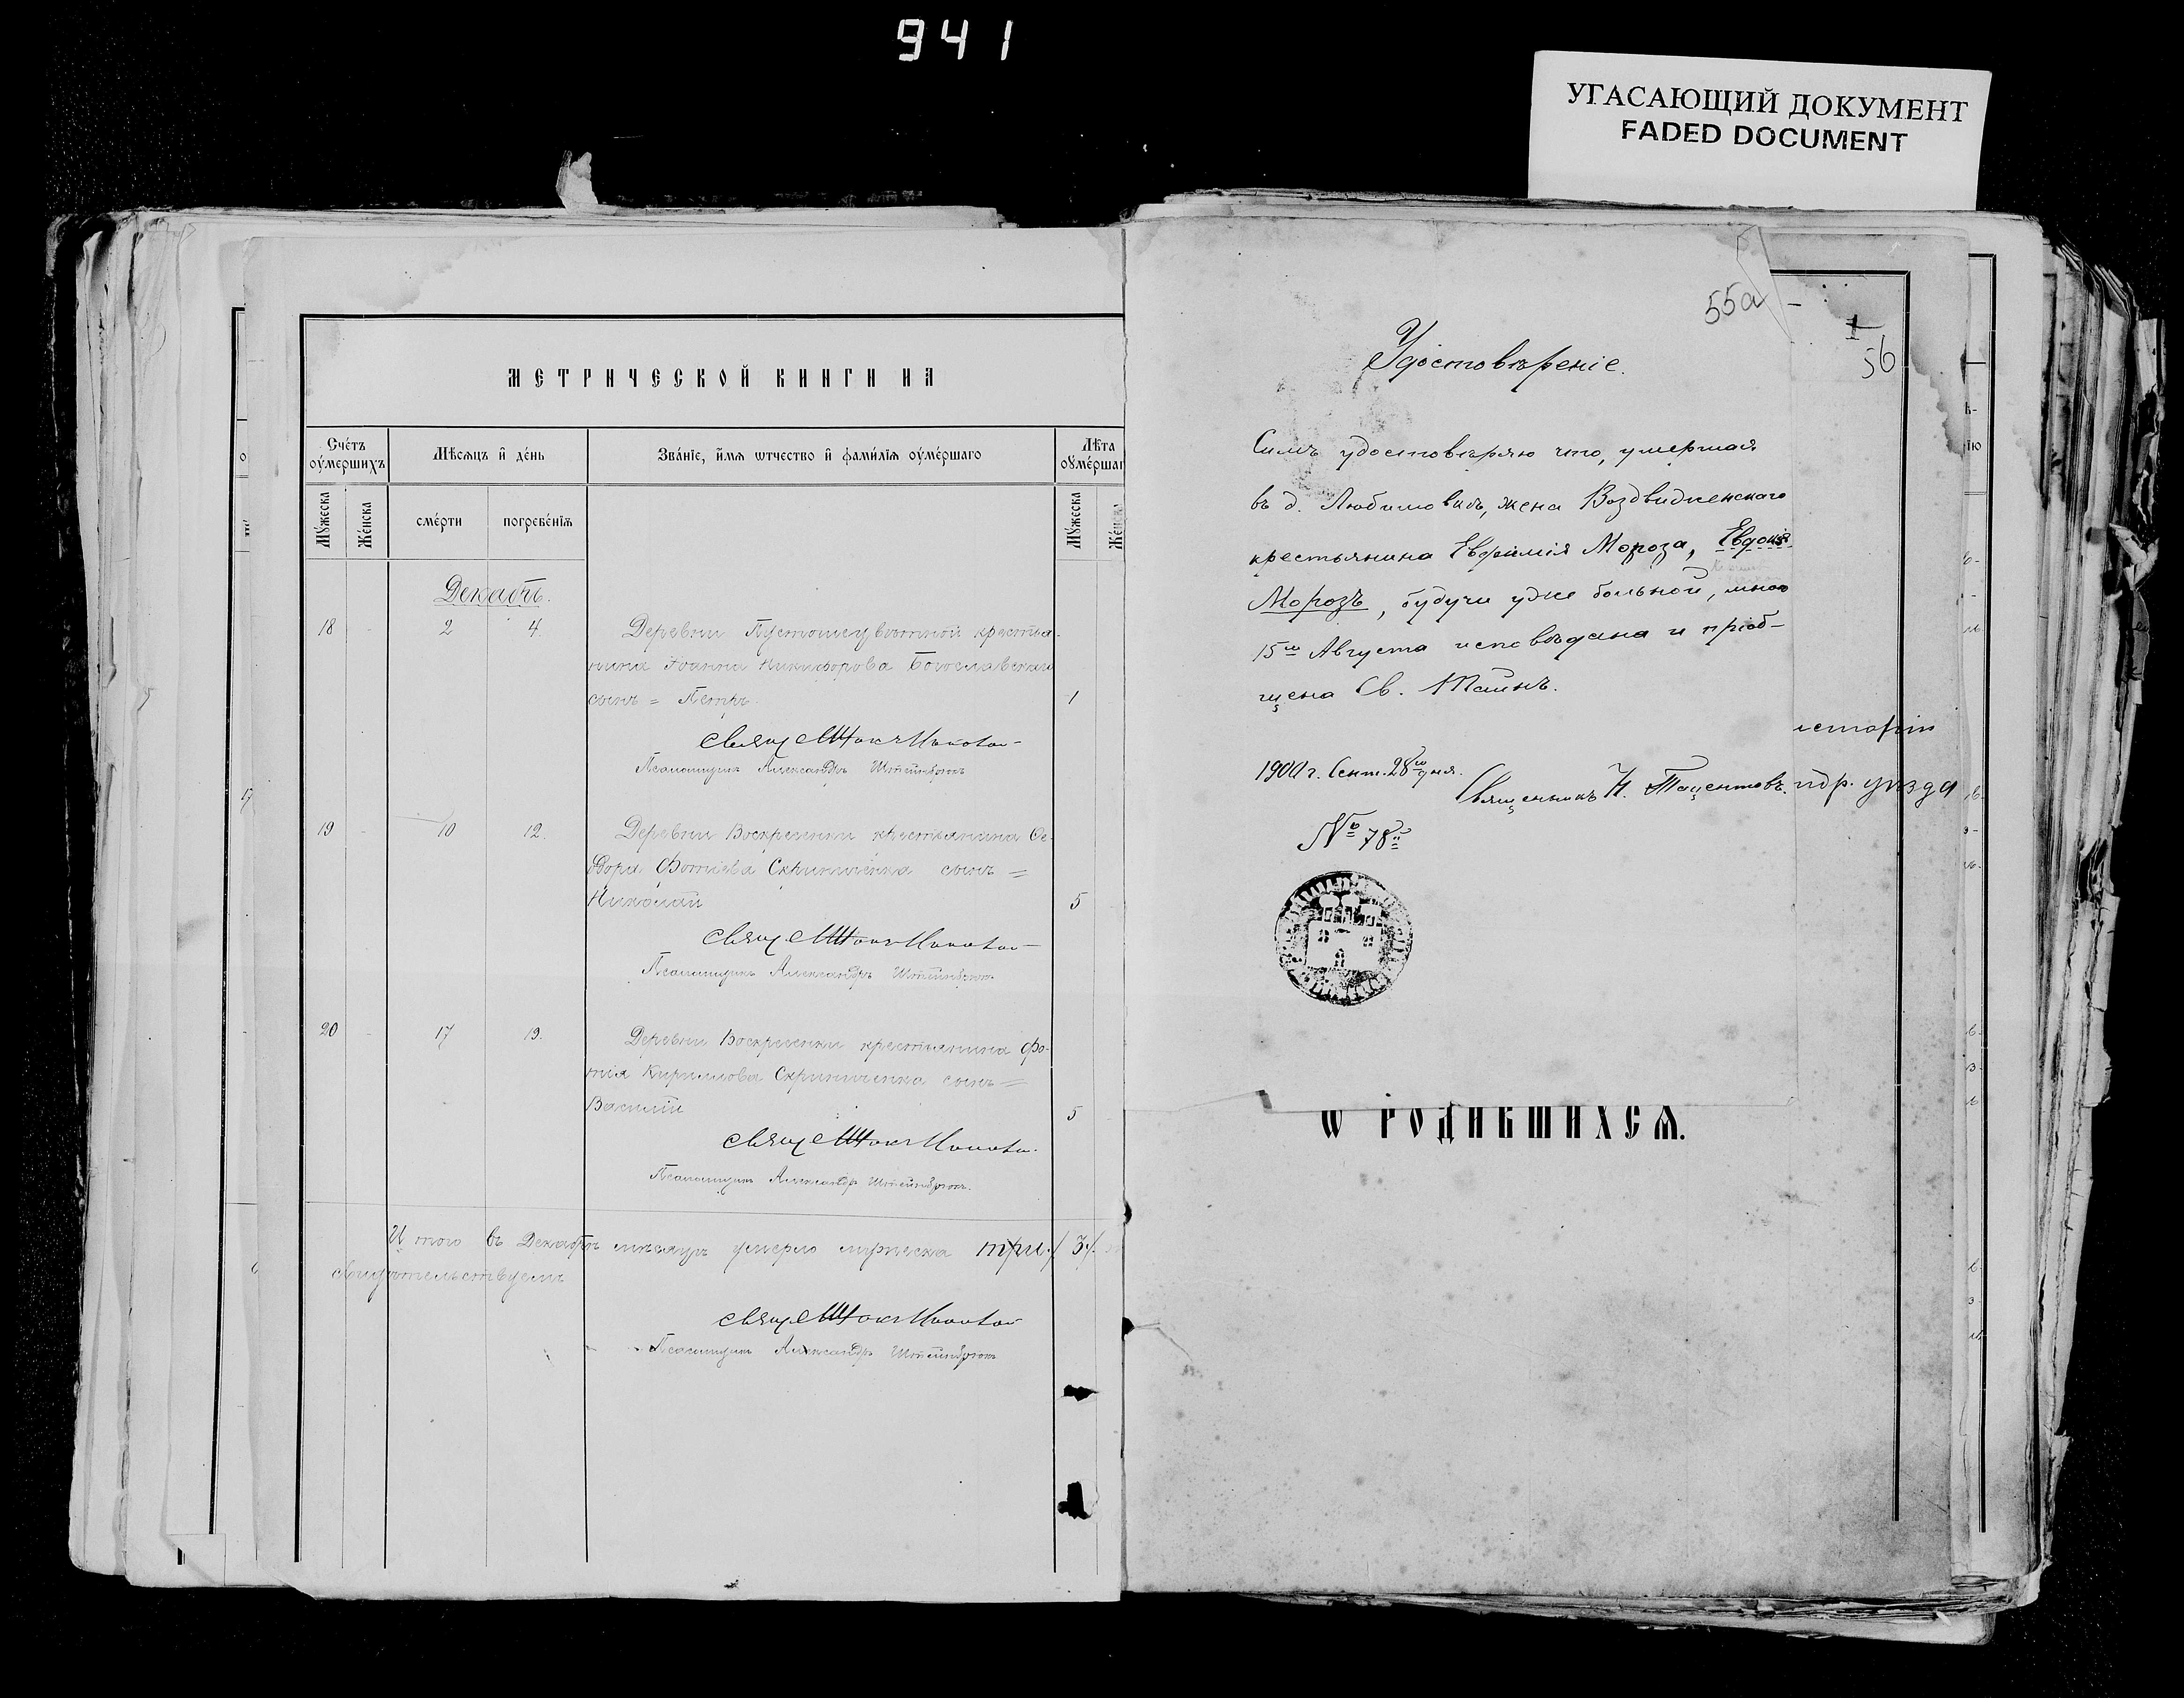 941
УГАСАЮЩИЙ ДОКУМЕНТ
FADED DOCUMENT
МЕТРИЧЕСКОЙ КНИГИ НА
Сче́тъ оу҆ме́ршихъ
Мѣ́сѧцъ и҆ де́нь
Зва́нїе, и҆́мѧ ѻ҆́тчество и҆ фами́лїѧ оу҆ме́ршагѡ
Лѣ́та оу҆ме́ршаг
Мꙋ́жеска
Же́нска
сме́рти
погребе́нїѧ
Мꙋ́жеска
Же́нска
Декабрь.
18 2 4. Деревни крестья-
нина Іоанна Никифорова Богославскаго
сынъ = Петръ. 1
Свящ
Псаломщикъ Александръ Штейнбрюкъ
19 10 12. Деревни Воскресенки крестьянина Ѳе-
одора Фотіева сынъ =
Николай 5
Свящ
Псаломщикъ Александръ Штейнбрюкъ
20 17 19. Деревни Воскресенки крестьянина Фо-
тія Кириллова сынъ =
Василій 5
Свящ
Псаломщикъ Александръ Штейнбрюкъ.
Итого въ Декабрѣ мѣсяцѣ умерло мужеска три / 3 /.
свидѣтельствуемъ
Свящ
Псаломщикъ Александръ Штейнбрюкъ
55а
56
Удостовѣреніе.
Симъ удостовѣряю что, умершая
въ д. Любимовкѣ, жена Воздвиженскаго
крестьянина Евфимія Мороза, Евдокія
Морозъ, будучи уже больной, мною
15го Августа исповѣдана и пріоб-
щена Св. Таинъ.
1900 г. Сент. 28го дня.
Священникъ Н.
№ 78й
сторіи
уѣзда
Ѡ РОДИВШИХСѦ.